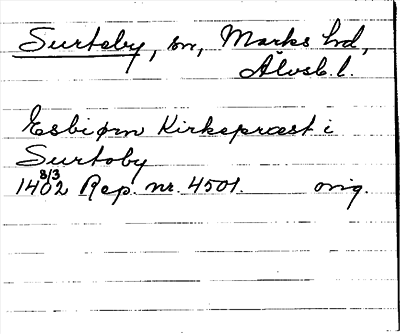 Surteby, sn, Marks hd,
Älvsb. l.
Esbiørn Kirkepræst i
Surtoby
8/3
1402 Rep. nr. 4501. orig.